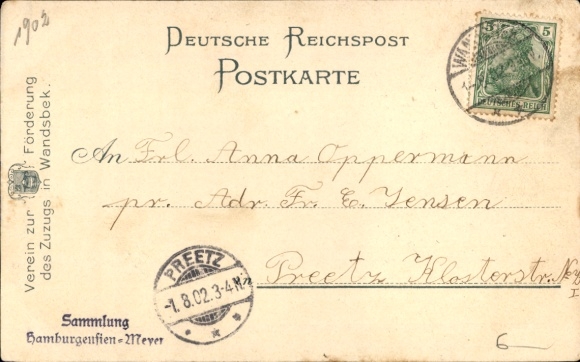 1902
Deutsche Reichspost
Postkarte
5 5
Deutsches Reich
Verein zur Förderung
des Zuzugs in Wandsbek.
An Frl. Anna Oppermann
pr. Adr. Fr. E. Jensen
Preetz Klosterstr.
PREETZ
-1.8.02.3-4N.
Sammlung
Hamburgensien-Meyer
6